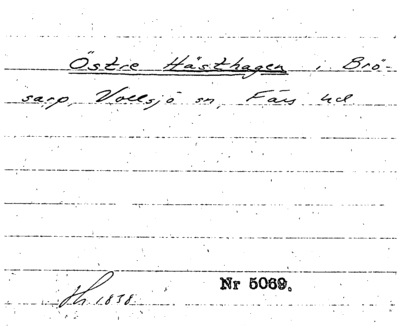 Östre Hästhagen, Brö-
sarp, Vollsjö sn, Färs hd
Nr 5069.
1838